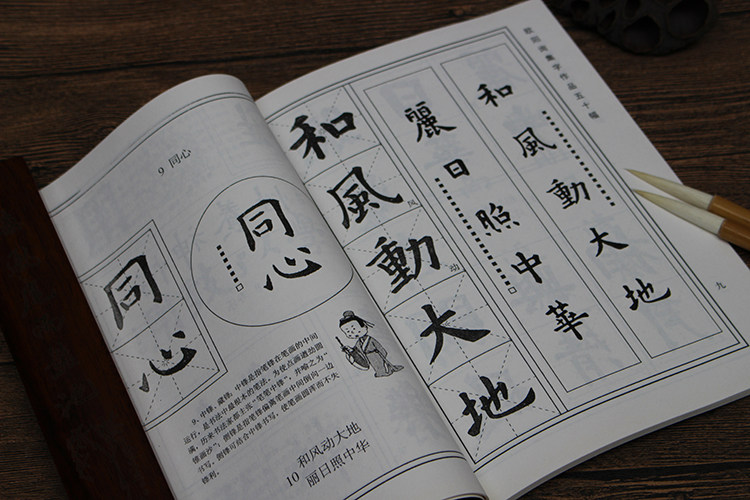 9 同心
同心
同心
9. 中锋、藏锋。中锋是指笔锋在笔画的中间
运行，是书法中最根本的笔法，为使点画遒劲圆
满，历来书法家都主张“笔笔中锋”，并喻之为“
锥画沙”。侧锋是指笔锋偏离笔画中间倒向一边
书写。侧锋可结合中锋书写，使笔画圆浑而不失
锋利。
10 和风动大地
丽日照中华
欧阳询集字作品五十幅
和風動大地
麗日照中華
和風動大地
风
动
九